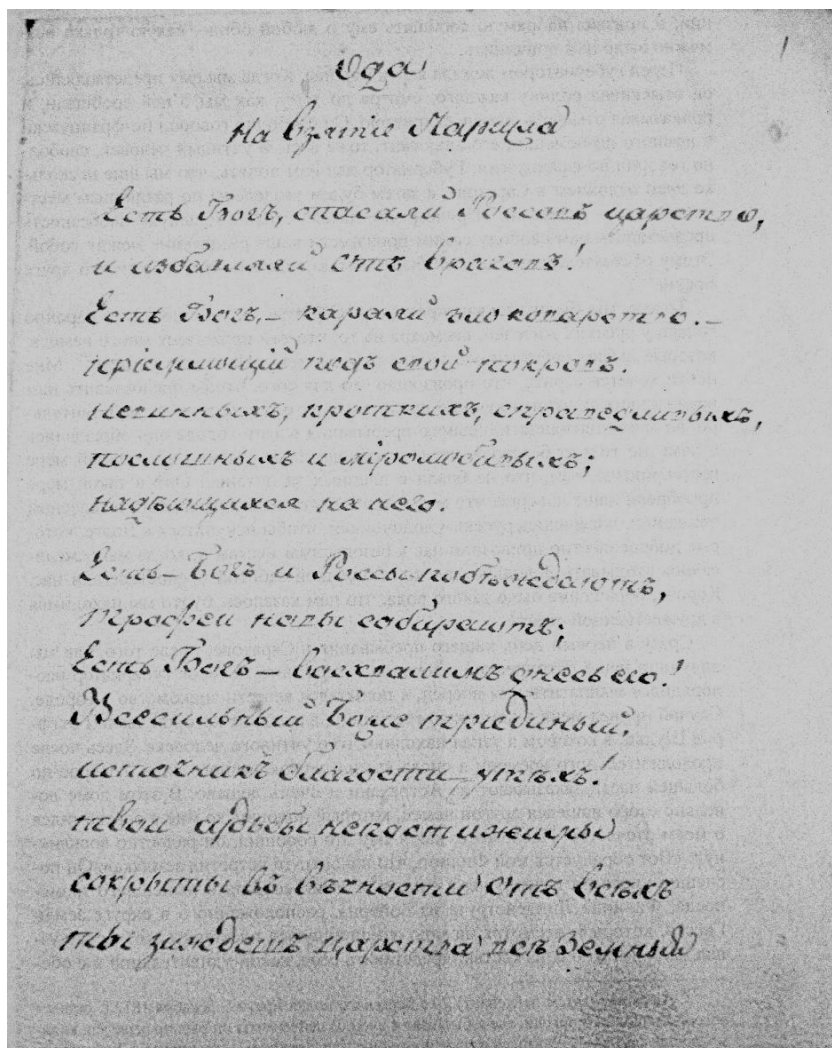 1
Ода
На взятіе Парижа
Есть Богъ, спасаяй Россовъ царство,
и избавляяй отъ враговъ!
Есть Богъ, – караяй злоковарство. –
пріемлющій подъ свой покровъ.
невинныхъ, кроткихъ, справедливыхъ,
послушныхъ и миролюбивыхъ;
надѣющихся на него.
Есть – Богъ и Россы побѣждаютъ,
трофеи
собираютъ;
Есть Богъ – восхвалимъ днесь его!
Всесильный Боже тріединый,
источникъ благости – утѣхъ!
твои судьбы непостижимы
сокрыты въ вѣчности отъ всѣхъ
ты зиждешъ царства всѣ земныя